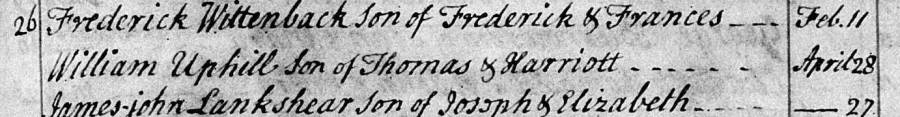 26 Frederick Wittenback Son of Frederick & Frances - - - Feb. 11
William Uphill Son of Thomas & Harriott - - - - - - April 28
James-john Lankshear Son of Joseph & Elizabeth - - - - — 27